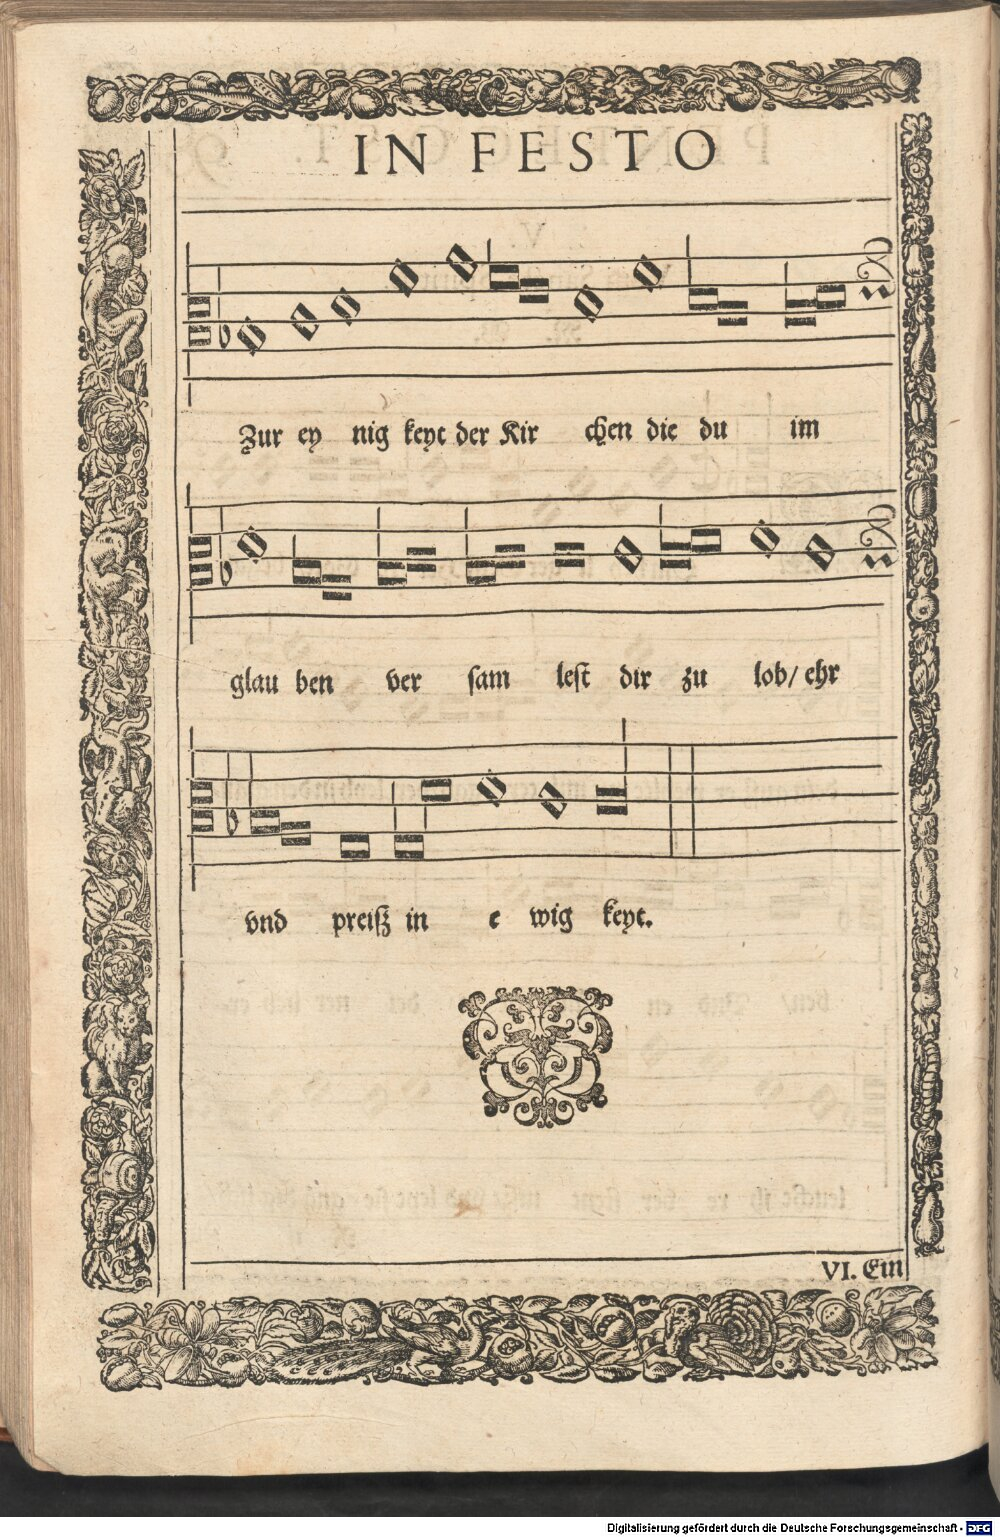 IN FESTO
Zur ey nig keyt der Kir chen die du im
glau ben ver sam lest dir zu lob/ ehr
vnd preisz in e wig keyt.
VI. Ein
Digitalisierung gefördert durch die Deutsche Forschungsgemeinschaft - DFG